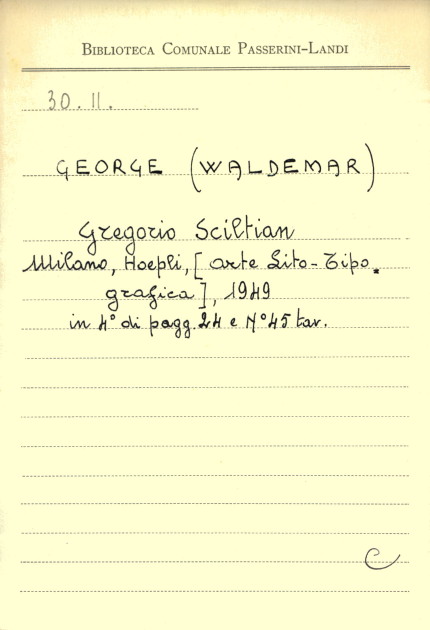 BIBLIOTECA COMUNALE PASSERINI-LANDI
30.11.
GEORGE (WALDEMAR)
Gregorio Sciltian
Milano, Hoepli, [Arte Lito-Tipo-
grafica], 1949
in 4° di pagg. 24 e N° 45 tav.
C